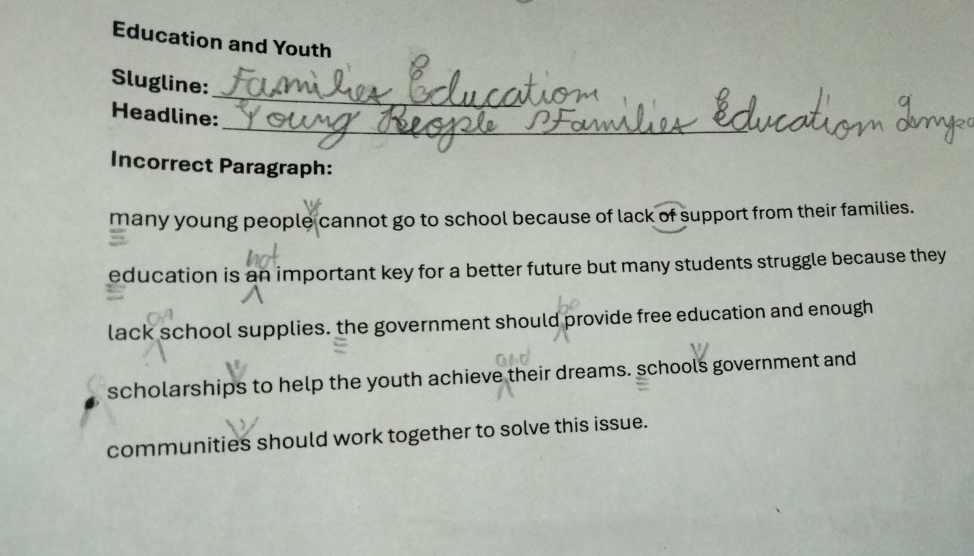 Education and Youth
Slugline: Families Education
Headline: Young People Families Education
Incorrect Paragraph:
many young people cannot go to school because of lack of support from their families.
not
education is an important key for a better future but many students struggle because they
on be
lack school supplies. the government should provide free education and enough
and
scholarships to help the youth achieve their dreams. schools government and
communities should work together to solve this issue.